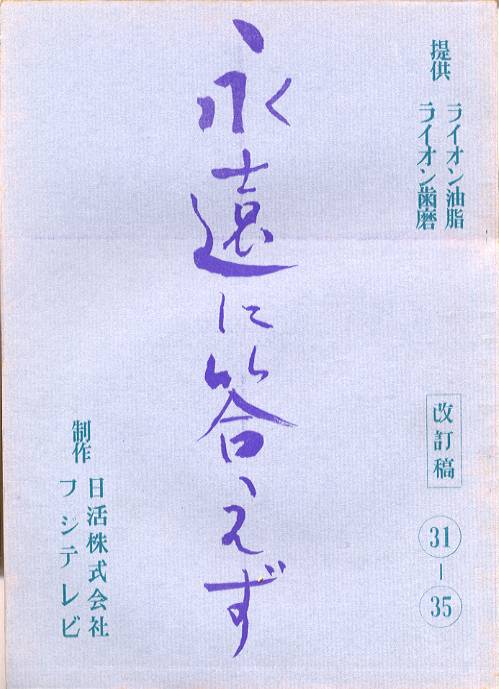 提供 ライオン油脂
ライオン歯磨
改訂稿
31
-
35
永遠に答えず
制作 日活株式会社
フジテレビ